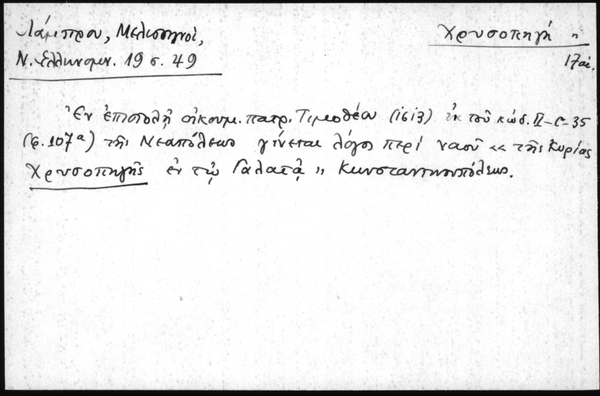 Λάμπρου, Μελισσηνοί,
Ν. Ελληνομν. 19 σ. 49
Χρυσοπηγή ἡ
17 αἰ.
Ἐν ἐπιστολῇ οἰκουμ. πατρ. Τιμοθέου (1613) ἐκ τοῦ κώδ. II-C-35
(φ. 107α) τῆς Νεαπόλεως γίνεται λόγος περὶ ναοῦ «τῆς Κυρίας
Χρυσοπηγῆς ἐν τῷ Γαλατᾷ» Κωνσταντινουπόλεως.